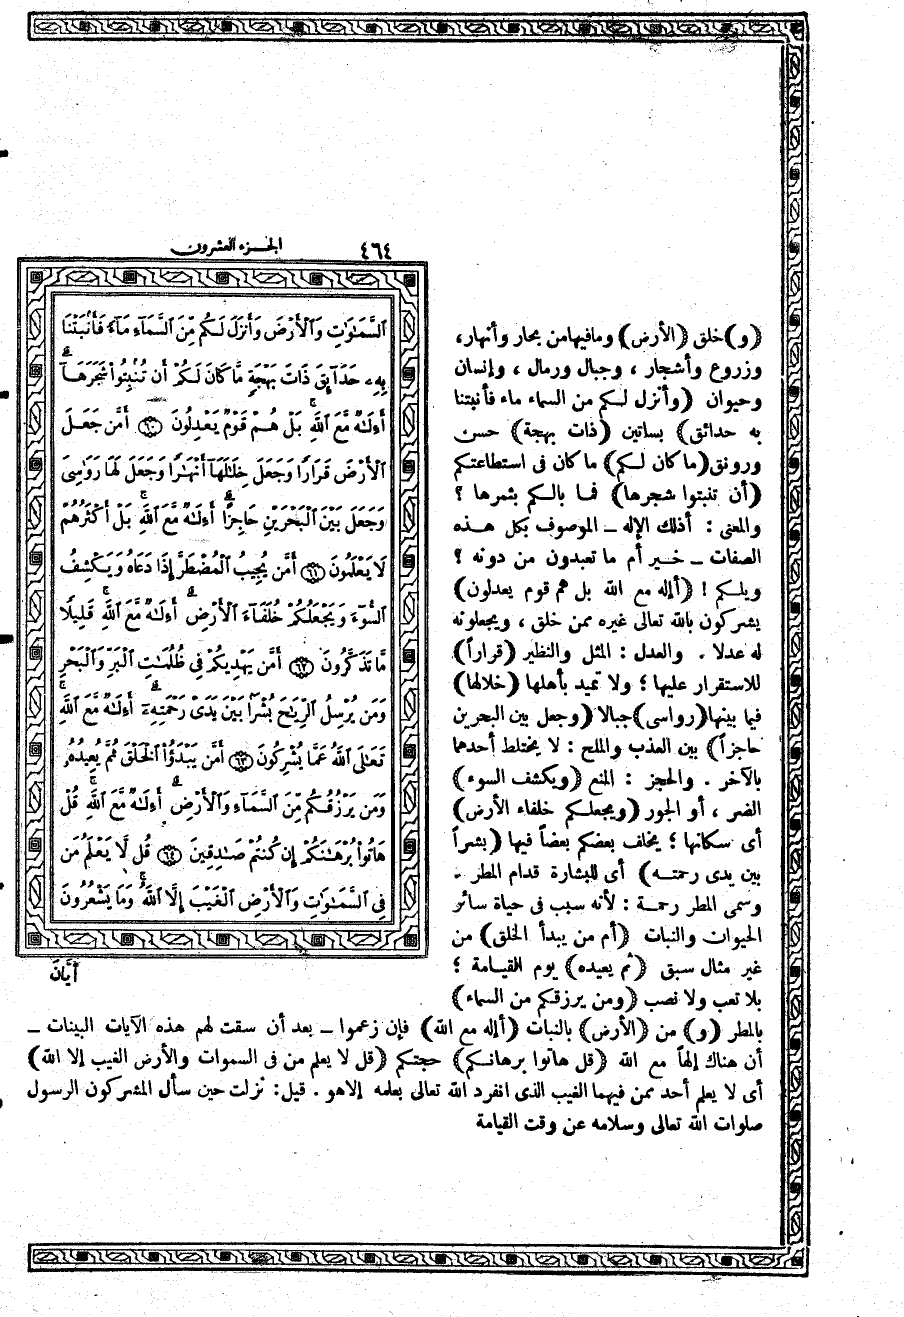 ٤٦٤
الجزء العشرون
السَّمَٰوَٰتِ وَالْأَرْضَ وَأَنزَلَ لَكُم مِّنَ السَّمَآءِ مَآءً فَأَنۢبَتْنَا
بِهِۦ حَدَآئِقَ ذَاتَ بَهْجَةٍ مَّا كَانَ لَكُمْ أَن تُنۢبِتُوا۟ شَجَرَهَآ
أَءِلَٰهٌ مَّعَ اللَّهِ بَلْ هُمْ قَوْمٌ يَعْدِلُونَ ٦٠ أَمَّن جَعَلَ
الْأَرْضَ قَرَارًا وَجَعَلَ خِلَٰلَهَآ أَنْهَٰرًا وَجَعَلَ لَهَا رَوَٰسِىَ
وَجَعَلَ بَيْنَ الْبَحْرَيْنِ حَاجِزًا أَءِلَٰهٌ مَّعَ اللَّهِ بَلْ أَكْثَرُهُمْ
لَا يَعْلَمُونَ ٦١ أَمَّن يُجِيبُ الْمُضْطَرَّ إِذَا دَعَاهُ وَيَكْشِفُ
السُّوٓءَ وَيَجْعَلُكُمْ خُلَفَآءَ الْأَرْضِ أَءِلَٰهٌ مَّعَ اللَّهِ قَلِيلًا
مَّا تَذَكَّرُونَ ٦٢ أَمَّن يَهْدِيكُمْ فِى ظُلُمَٰتِ الْبَرِّ وَالْبَحْرِ
وَمَن يُرْسِلُ الرِّيَٰحَ بُشْرًا بَيْنَ يَدَىْ رَحْمَتِهِۦٓ أَءِلَٰهٌ مَّعَ اللَّهِ
تَعَٰلَى اللَّهُ عَمَّا يُشْرِكُونَ ٦٣ أَمَّن يَبْدَؤُا۟ الْخَلْقَ ثُمَّ يُعِيدُهُۥ
وَمَن يَرْزُقُكُم مِّنَ السَّمَآءِ وَالْأَرْضِ أَءِلَٰهٌ مَّعَ اللَّهِ قُلْ
هَاتُوا۟ بُرْهَٰنَكُمْ إِن كُنتُمْ صَٰدِقِينَ ٦٤ قُل لَّا يَعْلَمُ مَن
فِى السَّمَٰوَٰتِ وَالْأَرْضِ الْغَيْبَ إِلَّا اللَّهُ وَمَا يَشْعُرُونَ
أَيَّانَ
(و) خلق (الأرض) ومافيها من بحار وأنهار،
وزروع وأشجار ، وجبال ورمال ، وإنسان
وحيوان (وأنزل لكم من السماء ماء فأنبتنا
به حدائق) بساتين (ذات بهجة) حسن
ورونق (ما كان لكم) ما كان فى استطاعتكم
(أن تنبتوا شجرها) فما بالكم بثمرها ؟
والمعنى : أذلك الإله ــ الموصوف بكل هــذه
الصفات ــ خير أم ما تعبدون من دونه ؟
ويلكم ! (أإله مع الله بل هم قوم يعدلون)
يشركون بالله تعالى غيره ممن خلق ، ويجعلونه
له عدلا . والعدل : المثل والنظير (قراراً)
للاستقرار عليها ؛ ولا تميد بأهلها (خلالها)
فيما بينها (رواسى) جبالا (وجعل بين البحرين
حاجزاً) بين العذب والملح : لا يختلط أحدهما
بالآخر . والحجز : المنع (ويكشف السوء)
الضر ، أو الجور (ويجعلكم خلفاء الأرض)
أى سكانها ؛ يخلف بعضكم بعضاً فيها (بشراً
بين يدى رحمته) أى للبشارة قدام المطر .
وسمى المطر رحمة : لأنه سبب فى حياة سائر
الحيوان والنبات (أم من يبدأ الخلق) من
غير مثال سبق (ثم يعيده) يوم القيامة ؛
بلا تعب ولا نصب (ومن يرزقكم من السماء)
بالمطر (و) من (الأرض) بالنبات (أإله مع الله) فإن زعموا ــ بعد أن سقت لهم هذه الآيات البينات ــ
أن هناك إلهاً مع الله (قل هاتوا برهانكم) حجتكم (قل لا يعلم من فى السموات والأرض الغيب إلا الله)
أى لا يعلم أحد ممن فيهما الغيب الذى انفرد الله تعالى بعلمه إلاهو . قيل: نزلت حين سأل المشركون الرسول
صلوات الله تعالى وسلامه عن وقت القيامة